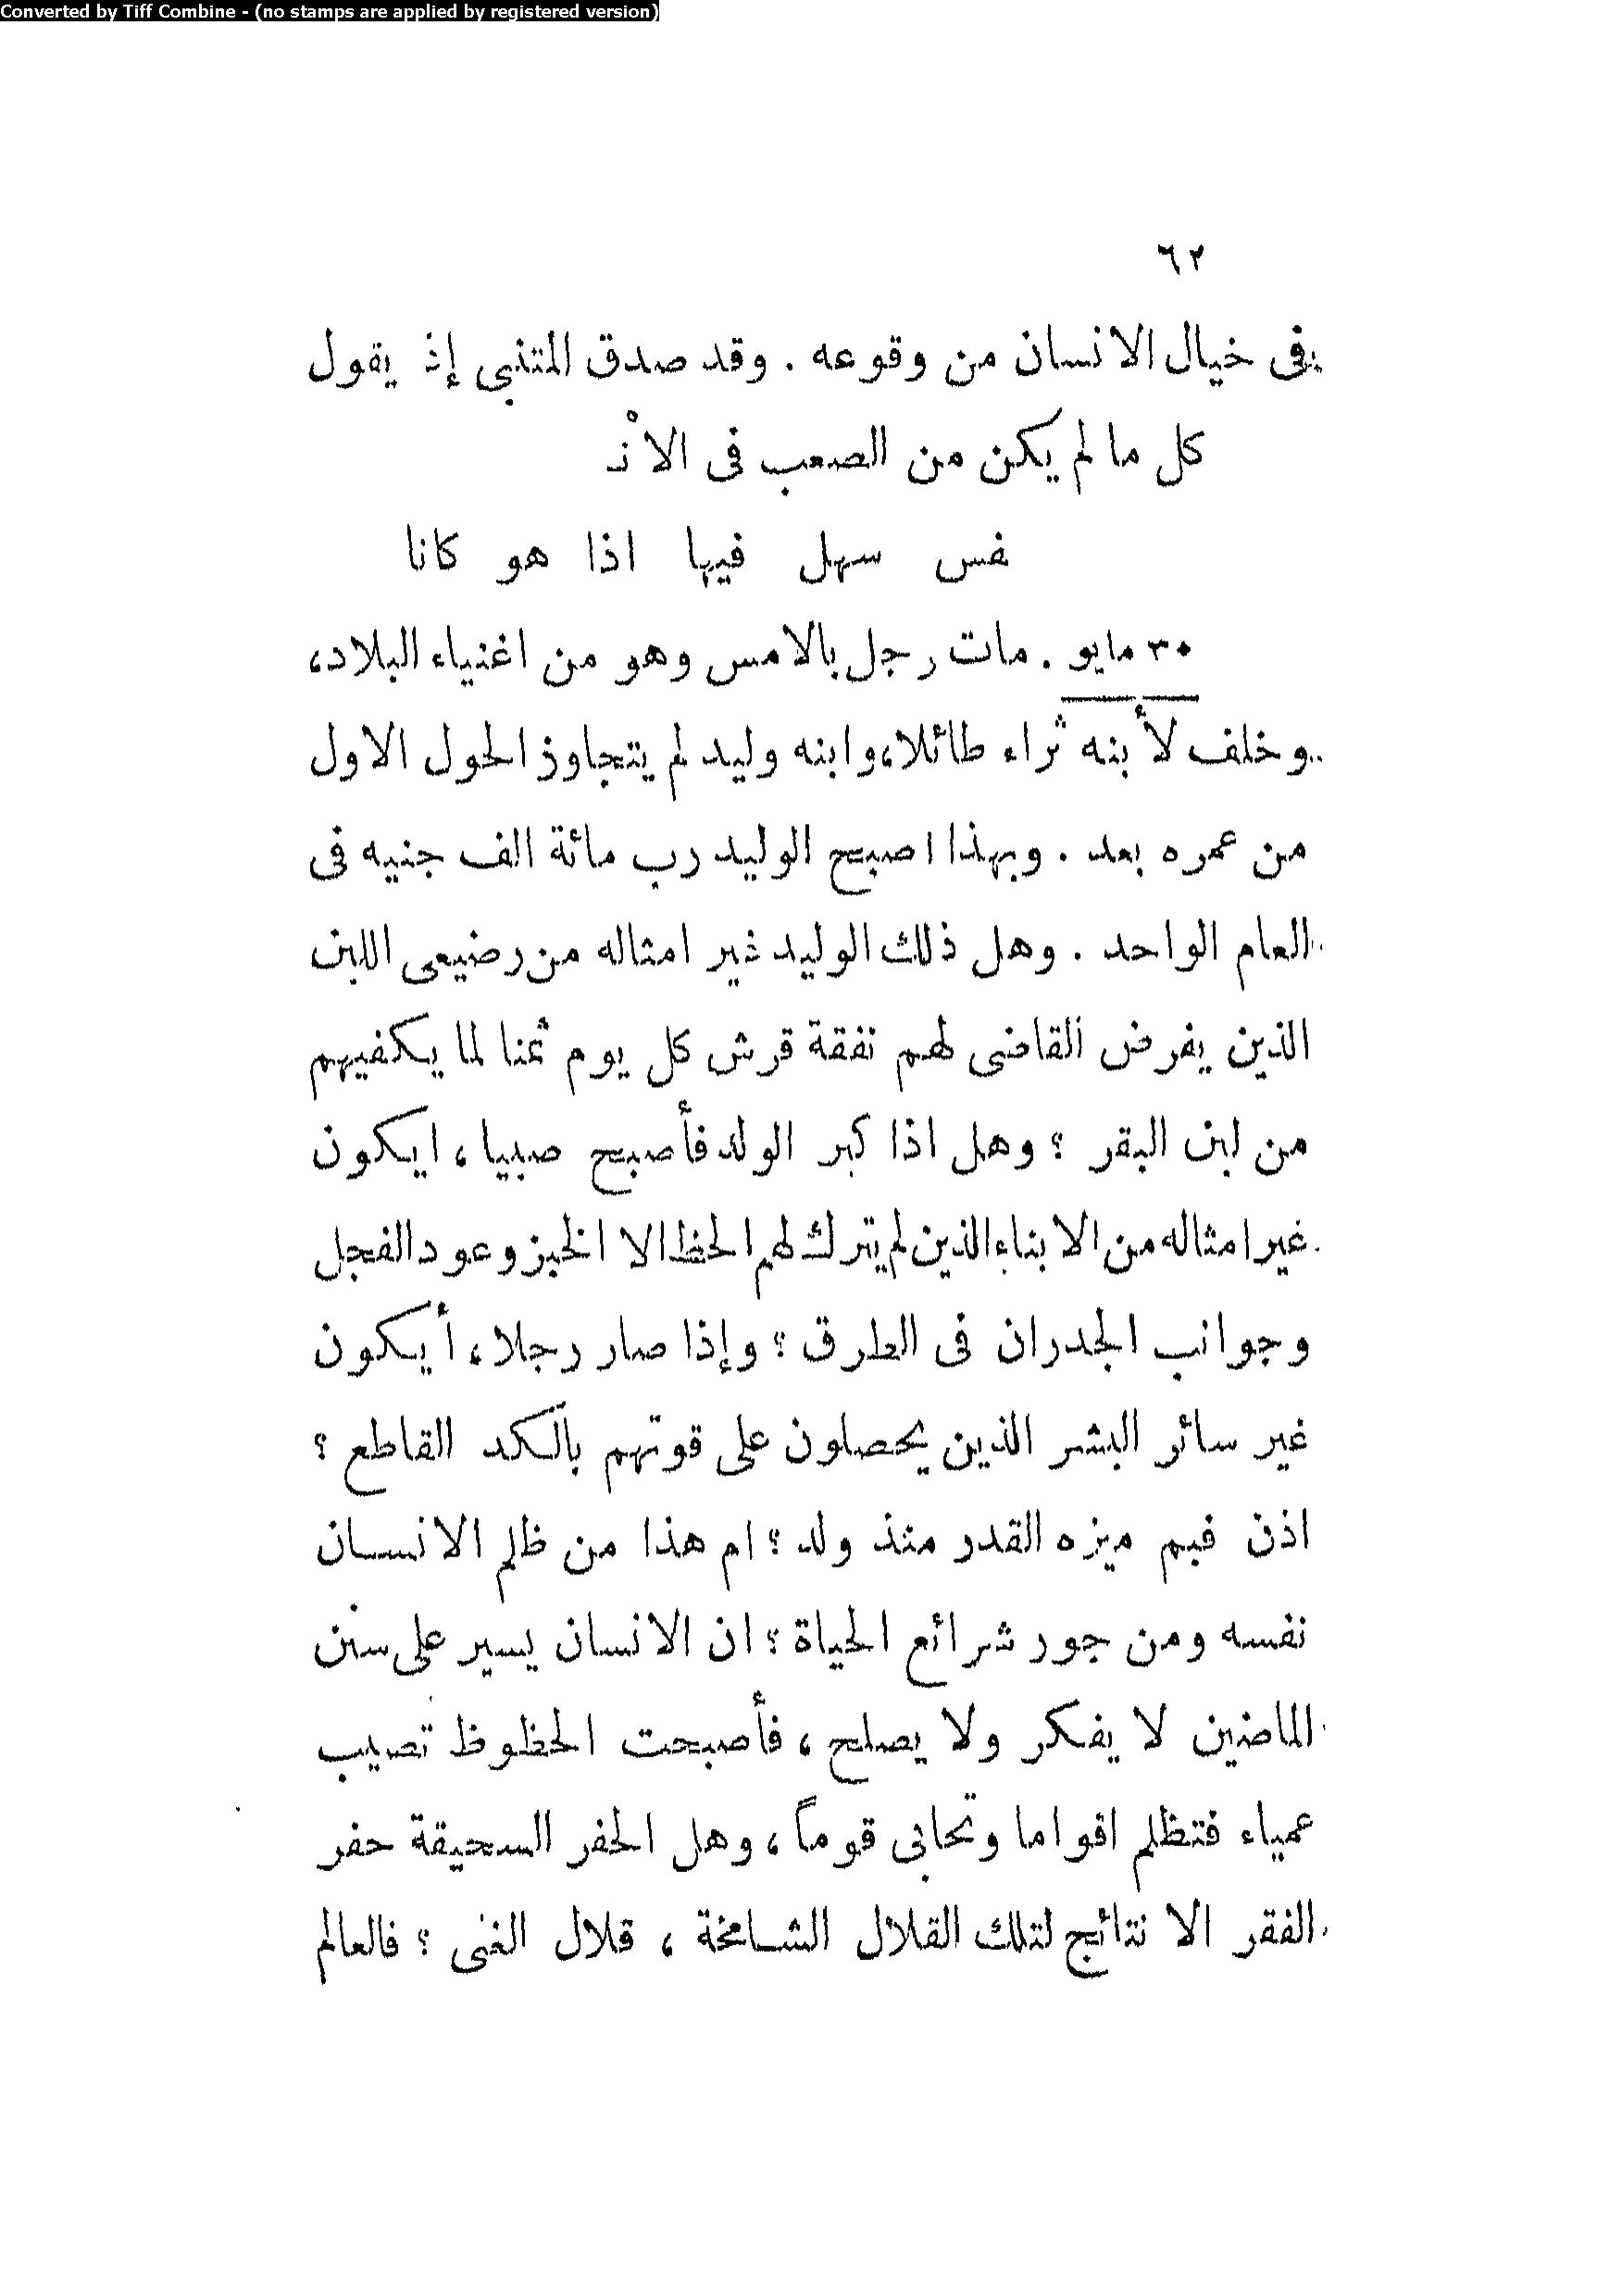 Converted by Tiff Combine - (no stamps are applied by registered version)
٦٢
فى خيال الانسان من وقوعه . وقد صدق المتنبى إذ يقول
كل ما لم يكن من الصعب فى الانْـ
ـفس سهل فيها اذا هو كانا
٣٠ مايو . مات رجل بالامس وهو من اغنياء البلاد،
وخلف لأبنه ثراء طائلا، وابنه وليد لم يتجاوز الحول الاول
من عمره بعد . وبهذا اصبح الوليد رب مائة الف جنيه فى
العام الواحد . وهل ذلك الوليد غير امثاله من رضيعى اللبن
الذين يفرض القاضى لهم نفقة قرش كل يوم ثمنا لما يكفيهم
من لبن البقر ؟ وهل اذا كبر الولد فأصبح صبيا، ايكون
غير امثاله من الابناء الذين لم يترك لهم الحظ الا الخبز وعود الفجل
وجوانب الجدران فى الطرق ؟ وإذا صار رجلا، أيكون
غير سائر البشر الذين يحصلون على قوتهم بالكد القاطع ؟
اذن فبم ميزه القدر منذ ولد ؟ ام هذا من ظلم الانسان
نفسه ومن جور شرائع الحياة ؟ ان الانسان يسير على سنن
الماضين لا يفكر ولا يصلح، فأصبحت الحظوظ تصيب
عمياء فتظلم اقواما وتحابى قوماً، وهل الحفر السحيقة حفر
الفقر الا نتائج لتلك القلال الشامخة، قلال الغنى ؟ فالعالم